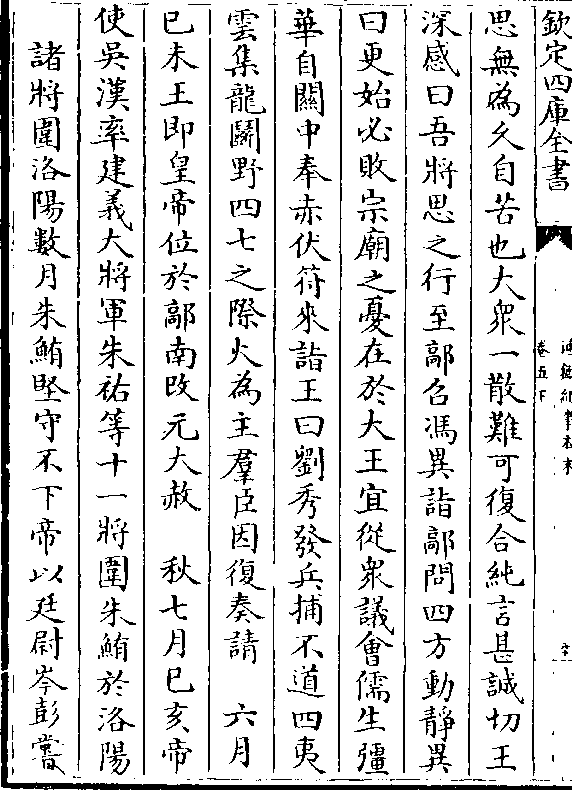 欽定四庫全書
通鑑紀事本末
卷五下
思無為久自苦也大衆一散難可復合純言甚誠切王
深感曰吾將思之行至鄗召馮異詣鄗問四方動靜異
曰更始必敗宗廟之憂在於大王宜從衆議會儒生彊
華自關中奉赤伏符來詣王曰劉秀發兵捕不道四夷
雲集龍鬭野四七之際火為主羣臣因復奏請　六月
已未王即皇帝位於鄗南改元大赦　秋七月已亥帝
使吳漢率建義大將軍朱祐等十一將圍朱鮪於洛陽
諸將圍洛陽數月朱鮪堅守不下帝以廷尉岑彭嘗